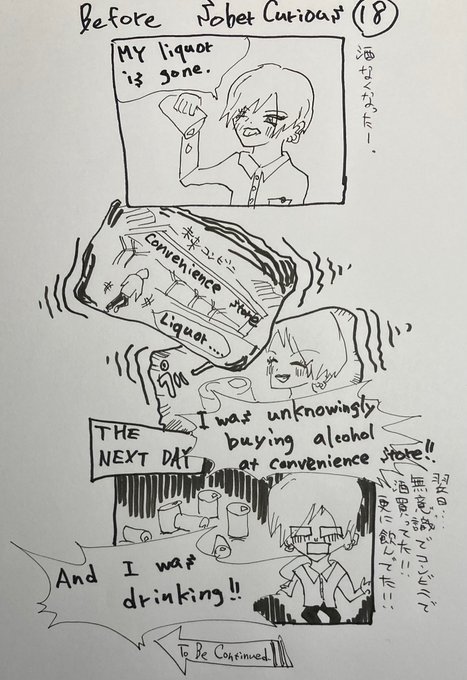 Before Sober Curious ⑱
MY liquor
is gone.
酒なくなったー.
コンビニ
Convenience
Store
Liquor...
I was unknowingly
buying alcohol
at convenience store!!
THE
NEXT DAY
翌日...
無意識でコンビニで
酒買ってた!!
更に飲んでた!!
And I was
drinking!!
To Be Continued.